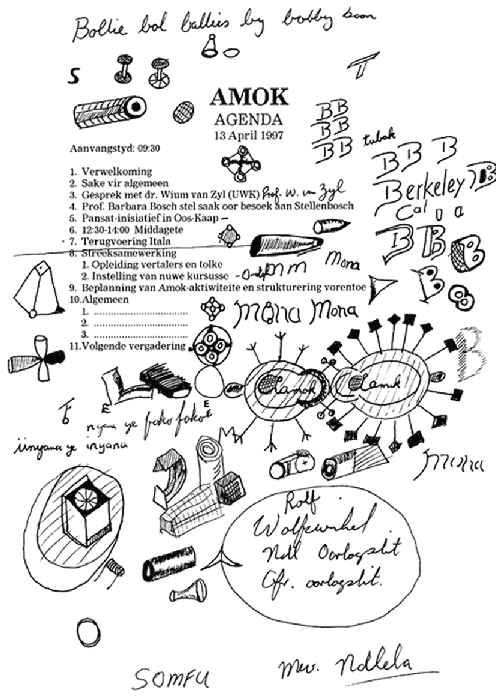 Bollie bol ballies by bobby boon
S
T
AMOK
AGENDA
13 April 1997
Aanvangstyd: 09:30
BB
BB
BB tubok
B B B
B
Berkeley
Cal
B B B
B
1. Verwelkoming
2. Sake vir algemeen
3. Gesprek met dr. Wium van Zyl (UWK) Prof. W. van Zyl
4. Prof. Barbara Bosch stel saak oor besoek aan Stellenbosch
5. Pansat-inisiatief in Oos-Kaap
6. 12:30-14:00 Middagete
7. Terugvoering Itala
8. Streeksamewerking
1. Opleiding vertalers en tolke
2. Instelling van nuwe kursusse
mm Mona
9. Beplanning van Amok-aktiwiteite en strukturering vorentoe
10. Algemeen
1. ..............................
2. ..............................
3. ..............................
Mona Mona
11. Volgende vergadering
B
amok
E
E
nyana ye foko fokot
iinyana ye inyana
M
Mona
Rolf
Wolfswinkel
Ndl Oorlogslit
Afr. oorlogslit.
SOMFU
Mev. Ndlela